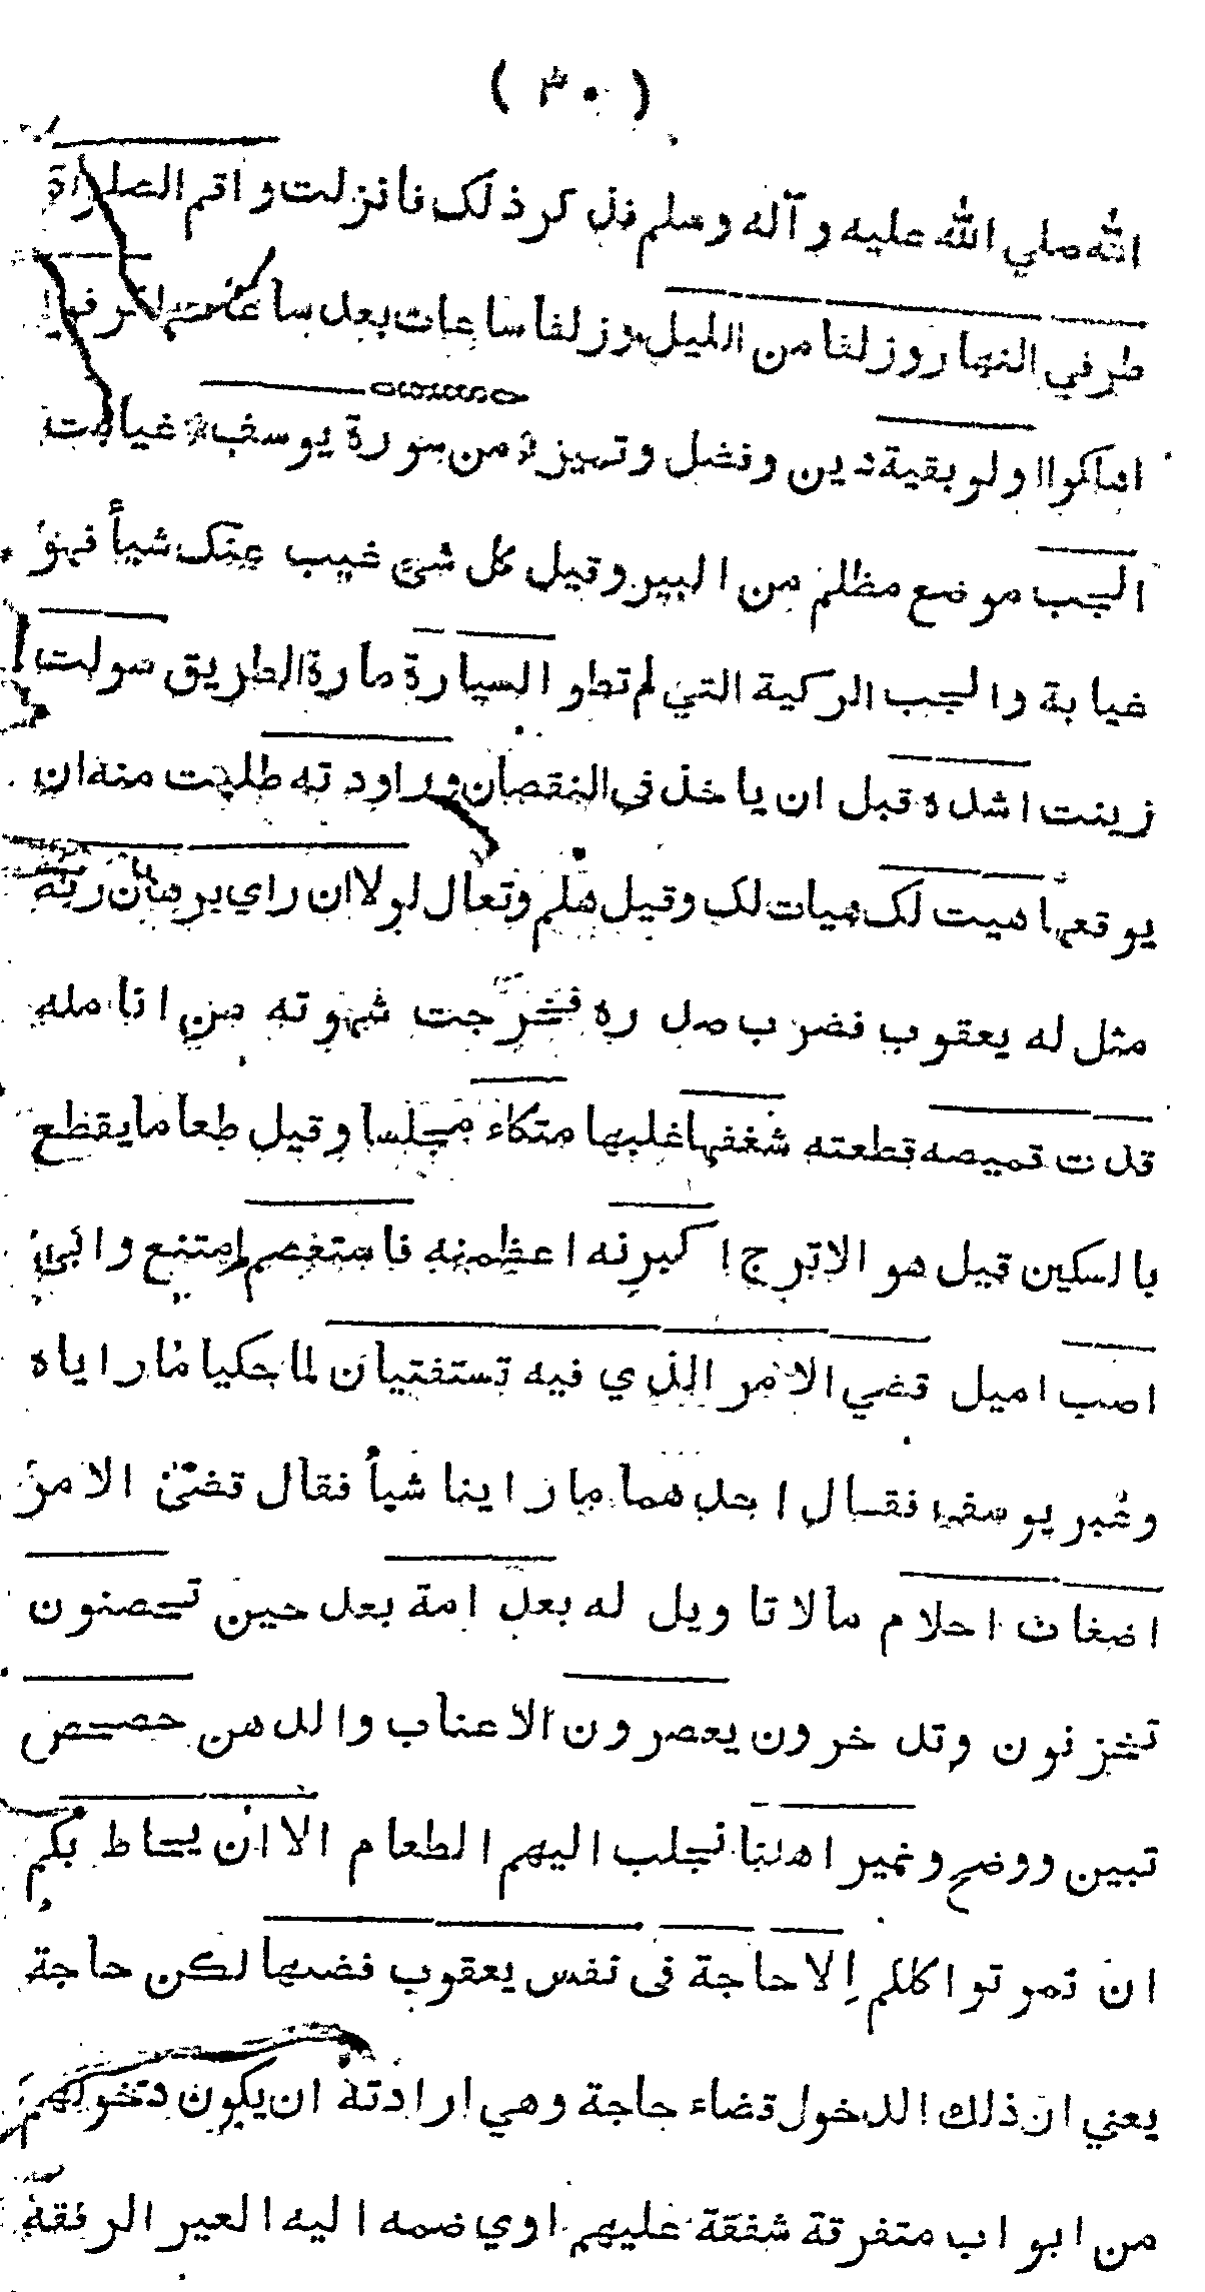 ( ٣٠ )
الله صلي الله عليه وآله وسلم فذكر ذلك فانزلت واقم الصلواة
طرفي النهار وزلفا من الليل وزلفا ساعات بعد ساعات
اهلكوا اولو بقية دين وفضل وتميز من سورة يوسف غيابت
الجب موضع مظلم من البير وقيل كل شئ غيب عنك شيأ فهو
غيابة والجب الركية التي لم تطو السيارة مارة الطريق سولت
زينت اشده قبل ان ياخذ في النقصان وراودته طلبت منه ان
يوقعها هيت لك هيات لك وقيل هلم وتعال لولا ان راي برهان ربه
مثل له يعقوب فضرب صدره فخرجت شهوته من انامله
قدت قميصه قطعته شغفها غلبها متكاء مجلسا وقيل طعاما يقطع
بالسكين قيل هو الاترج اكبرنه اعظمنه فاستعصم امتنع وابي
اصب اميل قضي الامر الذي فيه تستفتيان لما حكيا ما راياه
وعبر يوسف فقال احدهما ما راينا شيأ فقال قضى الامر
اضغاث احلام مالا تاويل له بعد امة بعد حين تحصنون
تخزنون وتدخرون يعصرون الاعناب والدهن حصحص
تبين ووضح ونمير اهلنا نجلب اليهم الطعام الا ان يحاط بكم
ان تموتوا كلكم اِلا حاجة فى نفس يعقوب قضىها لكن حاجة
يعني ان ذلك الدخول قضاء حاجة وهي ارادته ان يكون دخولهم
من ابواب متفرقة شفقة عليهم اوي ضمه اليه العير الرفقة